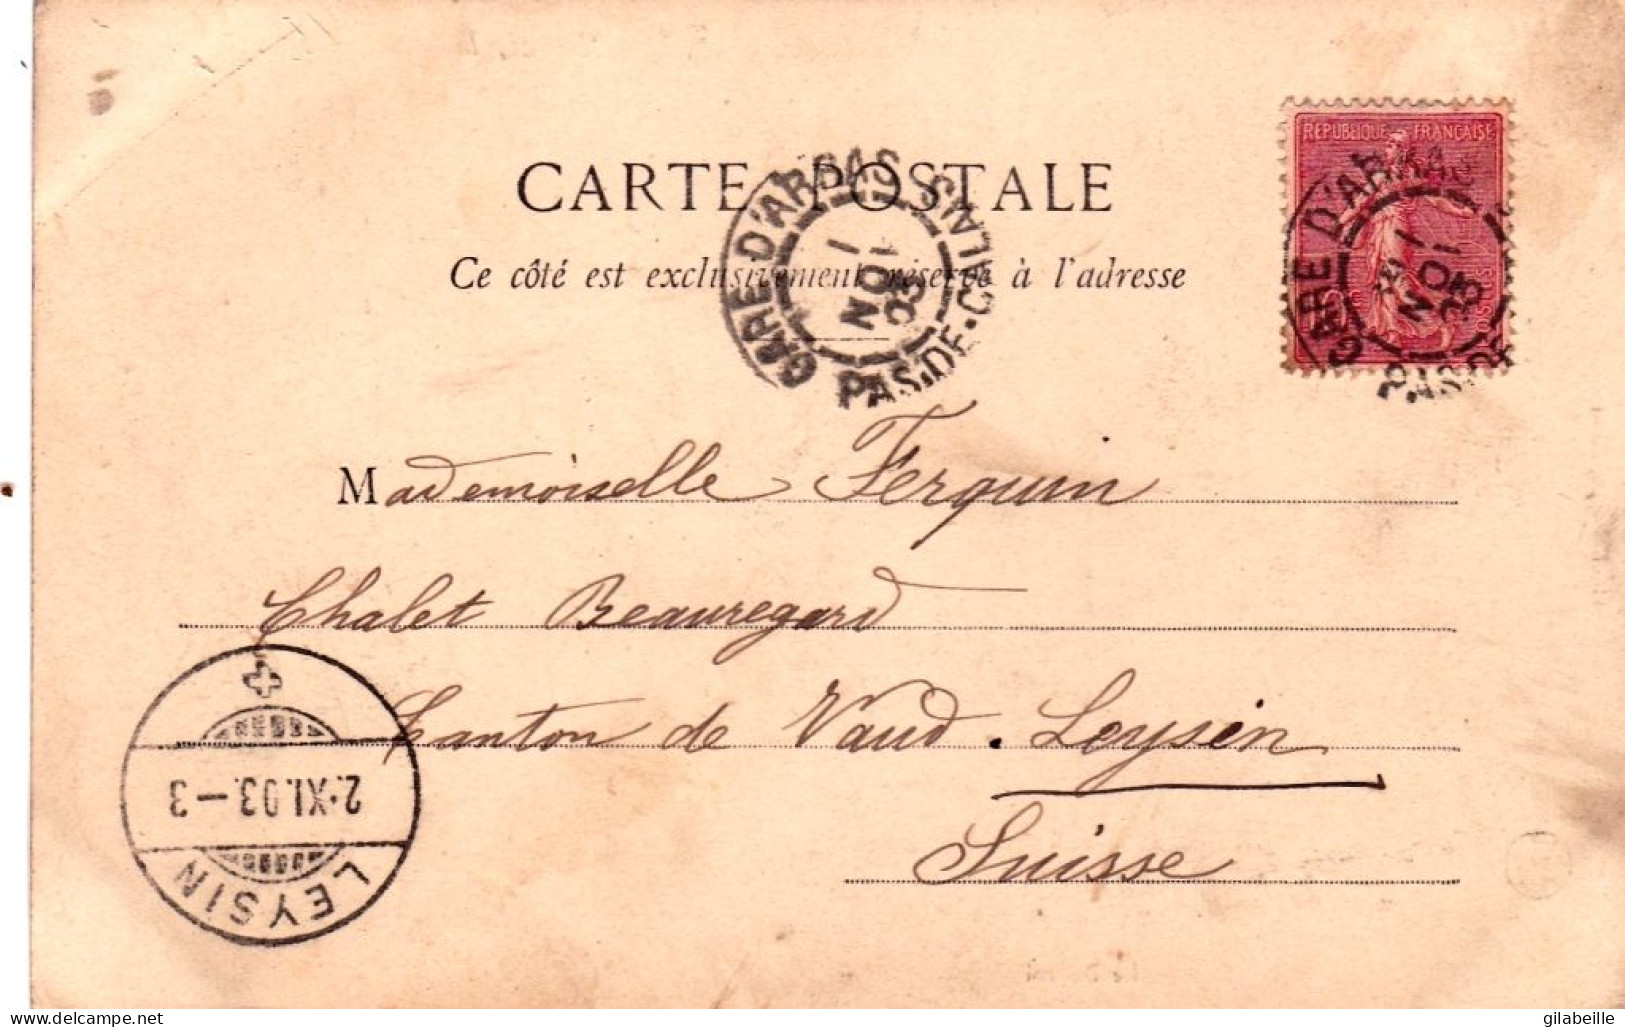 REPUBLIQUE FRANÇAISE
CARTE POSTALE
GARE D'ARRAS PAS-DE-CALAIS
1
NOV
03
GARE D'ARRAS PAS-DE
1
NOV
03
POSTES
Ce côté est exclusivement réservé à l'adresse
Mademoiselle Ferquin
Chalet Beauregard
Canton de Vaud. Leysin
Suisse
2.XI.03.-3
LEYSIN
delcampe.net
gilabeille